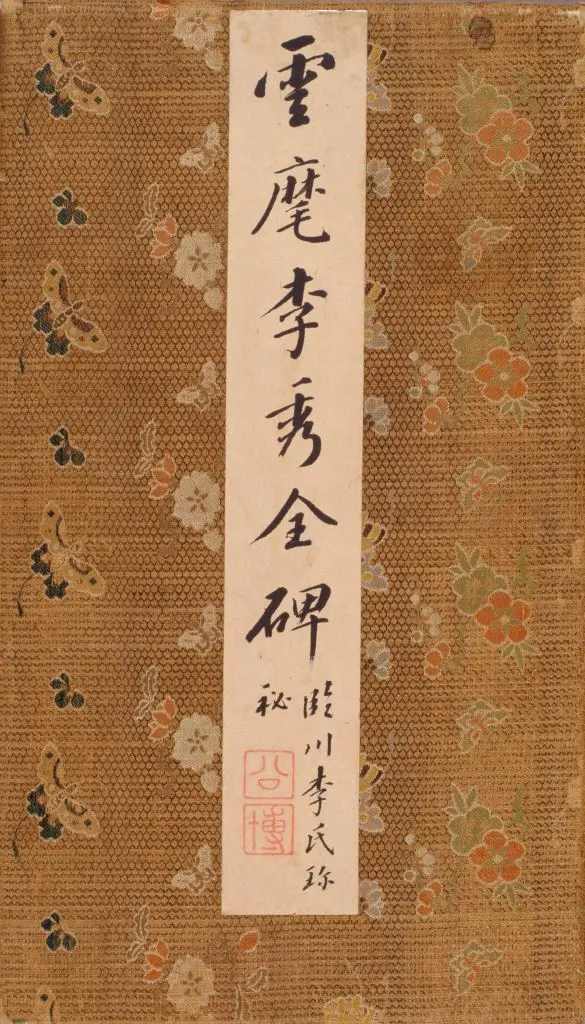 雲麾李秀全碑
臨川李氏珎
祕
公
博